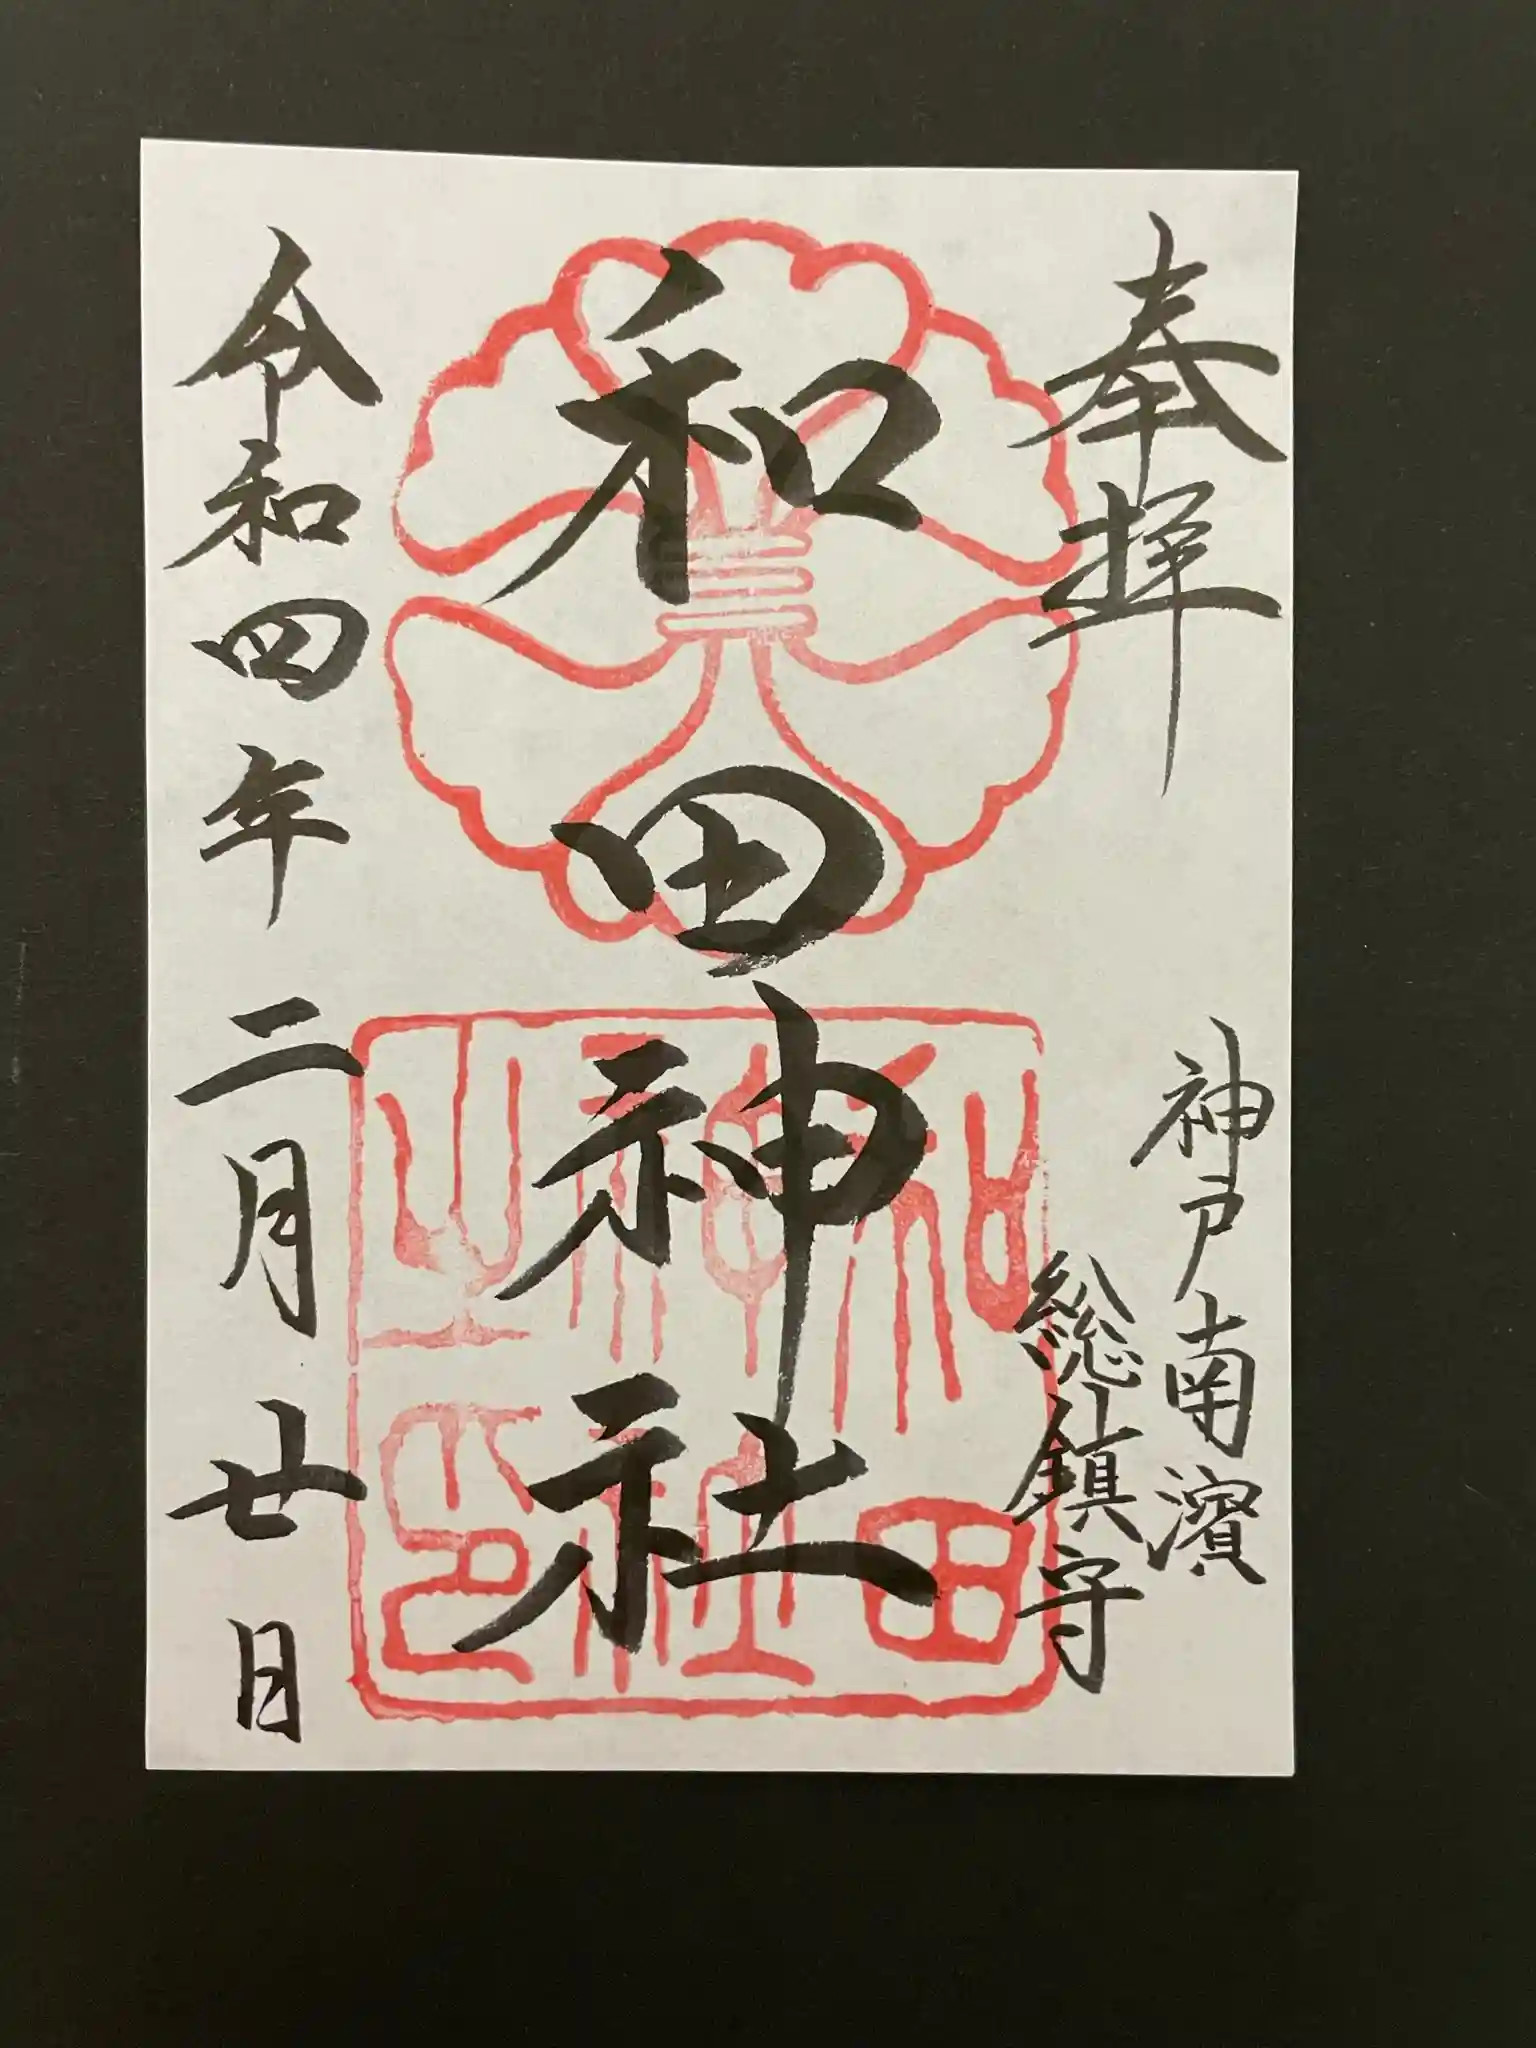 奉拝
神戸南濱
総鎮守
和田神社
和田
神社
之印
令和四年二月廿日